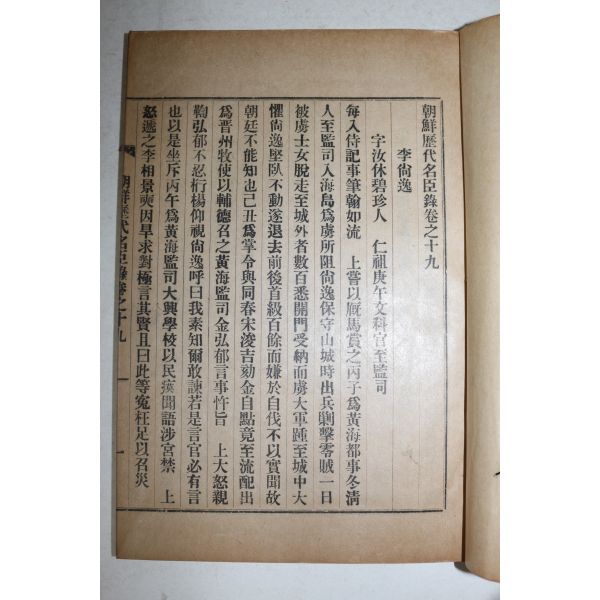 朝鮮歷代名臣錄卷之十九
李尙逸
字汝休碧珍人 仁祖庚午文科官至監司
每入侍記事筆翰如流 上嘗以厩馬賞之丙子爲黃海都事冬淸
人至監司入海島爲虜所阻尙逸保守山城時出兵剿擊零賊一日
被虜士女脫走至城外者數百悉開門受納而虜大軍踵至城中大
懼尙逸堅臥不動遂退去前後首級百餘而嫌於自伐不以實聞故
朝廷不能知也己丑爲掌令與同春宋浚吉劾金自點竟至流配出
爲晋州牧使以輔德召之黃海監司金弘郁言事忤旨 上大怒親
鞫弘郁不忍桁楊仰視尙逸呼曰我素知爾敢諫若是言官必有言
也以是坐斥丙午爲黃海監司大興學校以民瘼聞語涉宮禁 上
怒遞之李相景奭因旱求對極言其賢且曰此等寃枉足以召災
朝鮮歷代名臣錄卷之十九 一